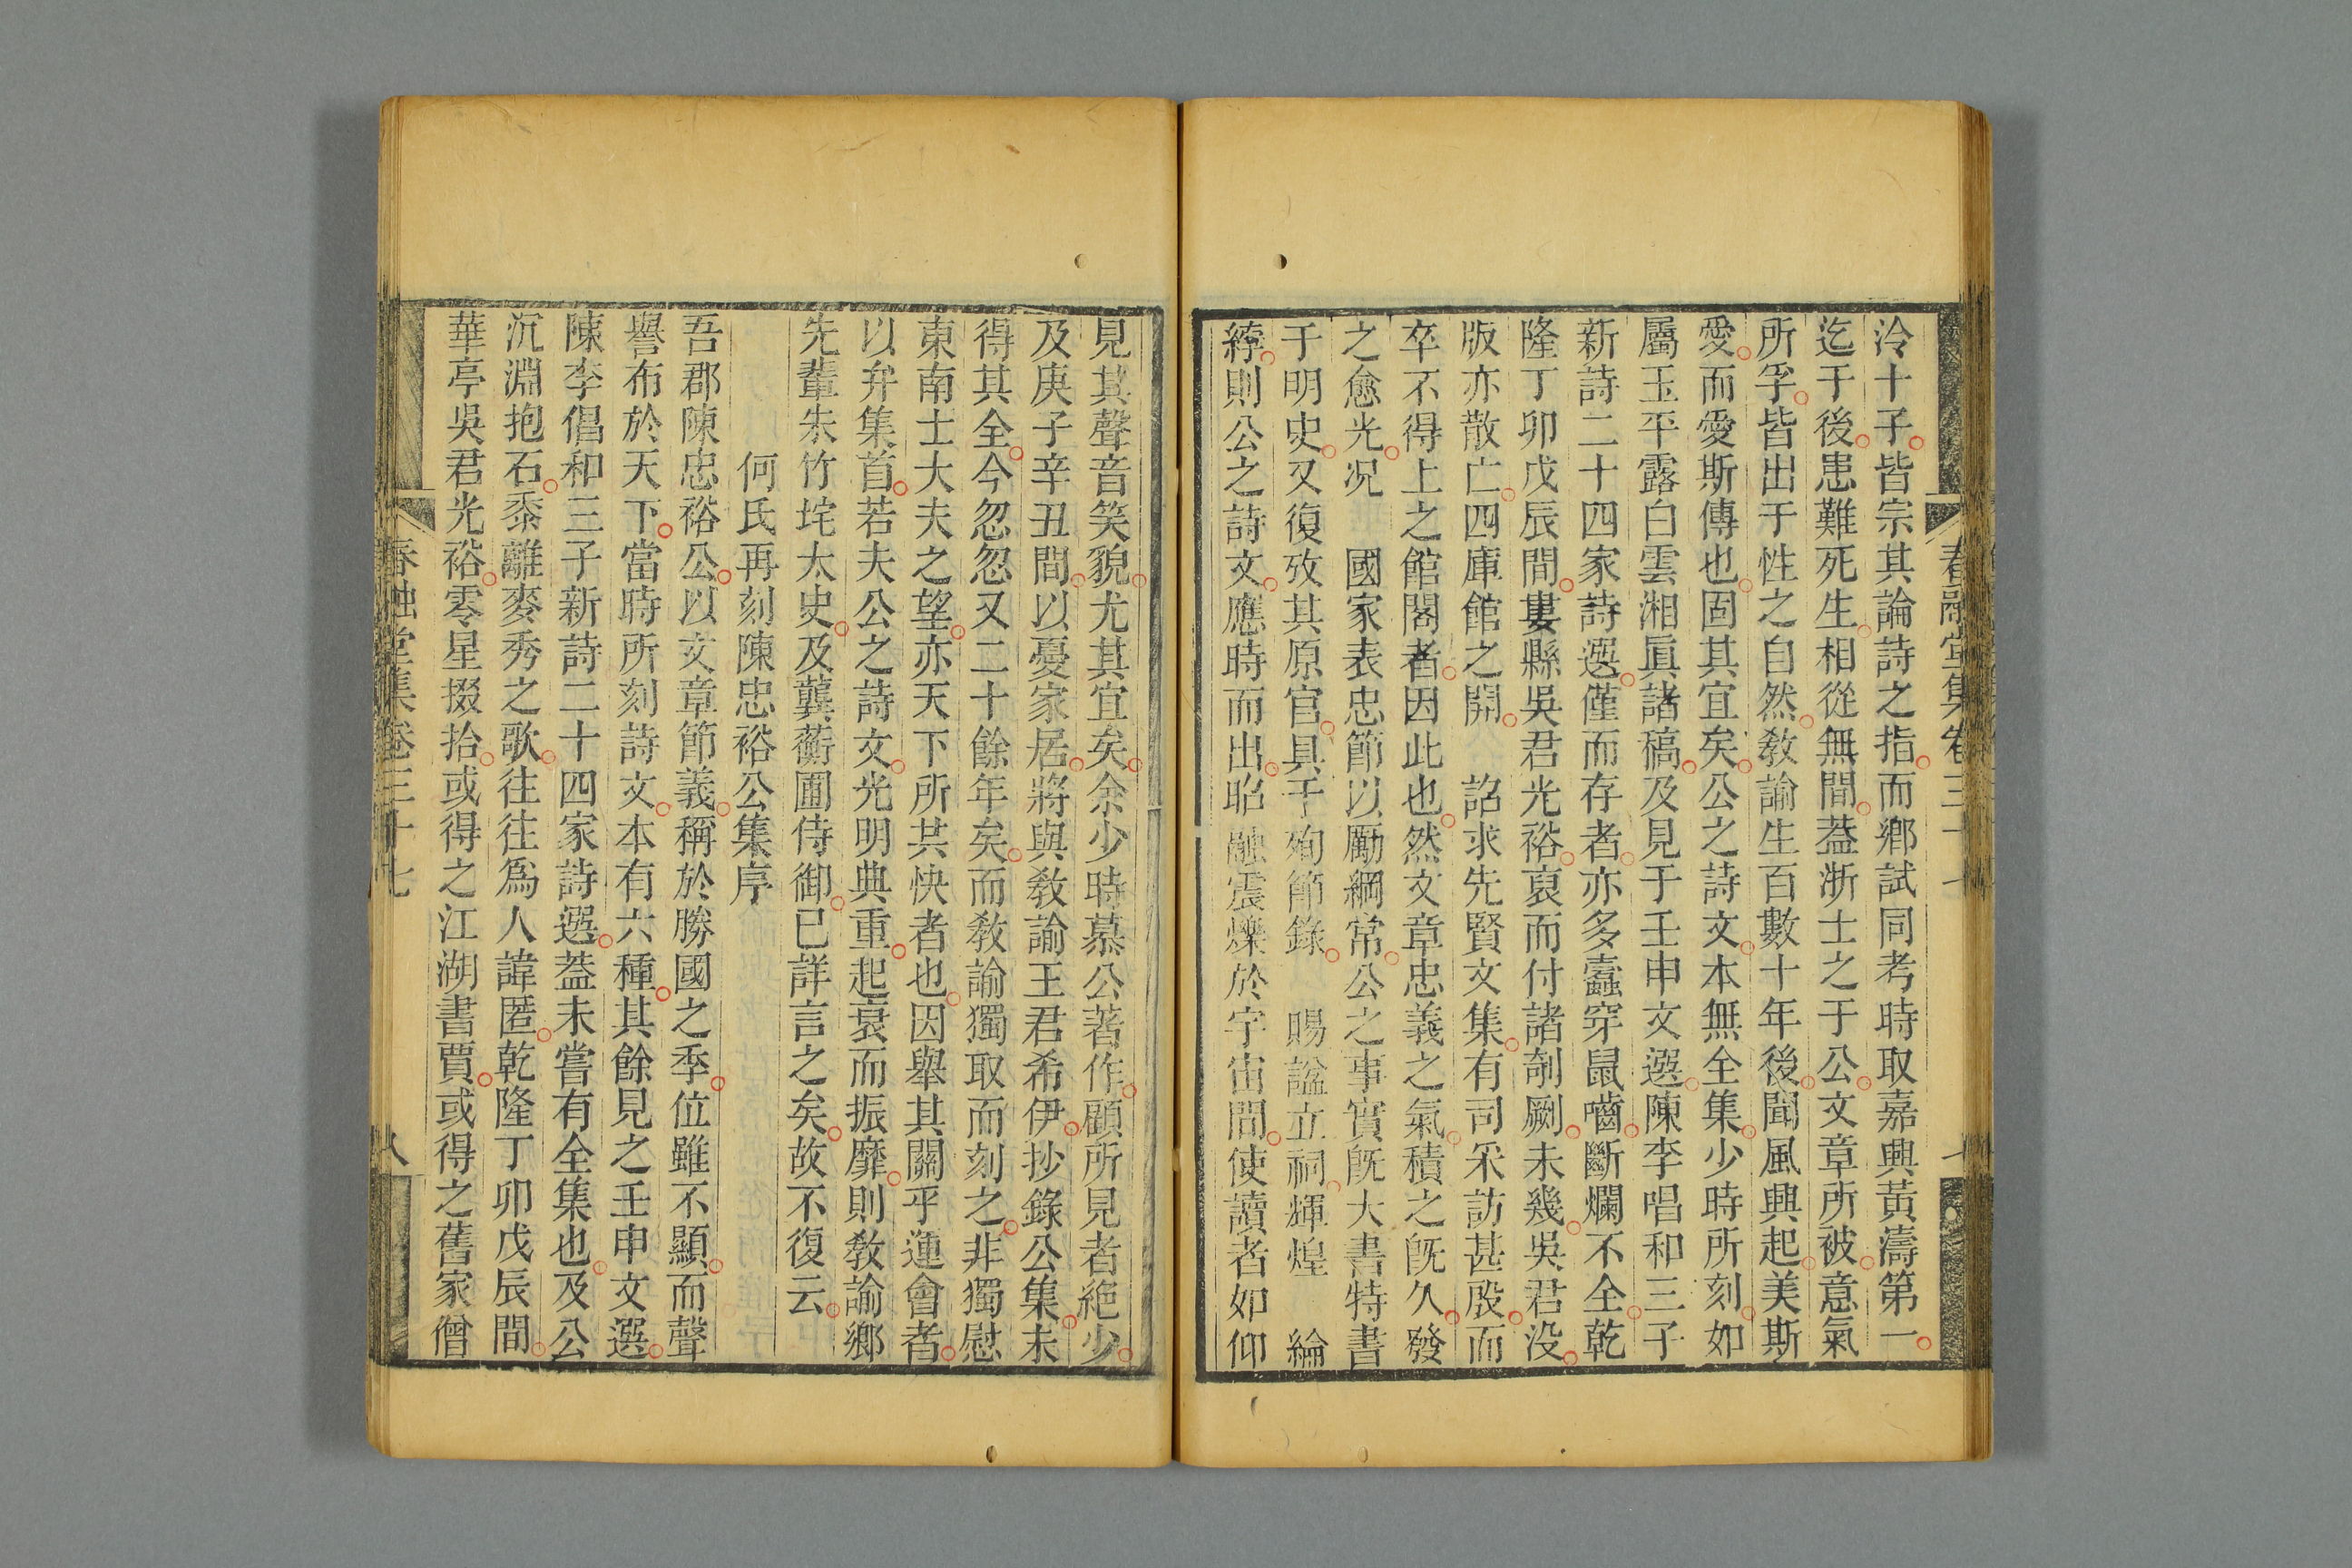 泠十子皆宗其論詩之指而鄉試同考時取嘉興黃濤第一
迄于後患難死生相從無間葢浙士之于公文章所被意氣
所孚皆出于性之自然敎諭生百數十年後聞風興起美斯
愛而愛斯傳也固其宜矣公之詩文本無全集少時所刻如
屬玉平露白雲湘眞諸稿及見于壬申文選陳李唱和三子
新詩二十四家詩選僅而存者亦多蠹穿鼠嚙斷爛不全乾
隆丁卯戊辰間婁縣吳君光裕裒而付諸剞劂未幾吳君没
版亦散亡四庫館之開 詔求先賢文集有司采訪甚殷而
卒不得上之館閣者因此也然文章忠義之氣積之旣久發
之愈光况 國家表忠節以勵綱常公之事實旣大書特書
于明史又復攷其原官具于殉節錄 賜諡立祠輝煌 綸
綍則公之詩文應時而出昭融震爍於宇宙間使讀者如仰
春融堂集卷三十七
七
見其聲音笑貌尤其宜矣余少時慕公著作顧所見者絶少
及庚子辛丑間以憂家居將與敎諭王君希伊抄錄公集未
得其全今忽忽又二十餘年矣而敎諭獨取而刻之非獨慰
東南士大夫之望亦天下所共快者也因舉其關乎運會者
以弁集首若夫公之詩文光明典重起衰而振靡則敎諭鄉
先輩朱竹垞太史及龔蘅圃侍御已詳言之矣故不復云
何氏再刻陳忠裕公集序
吾郡陳忠裕公以文章節義稱於勝國之季位雖不顯而聲
譽布於天下當時所刻詩文本有六種其餘見之壬申文選
陳李倡和三子新詩二十四家詩選葢未嘗有全集也及公
沉淵抱石黍離麥秀之歌往往爲人諱匿乾隆丁卯戊辰間
華亭吳君光裕零星掇拾或得之江湖書賈或得之舊家僧
春融堂集卷三十七
八